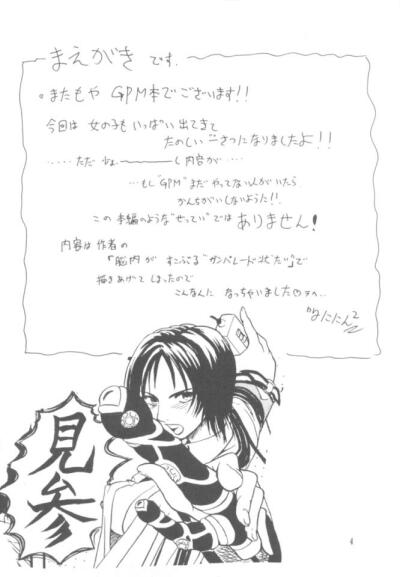 まえがき です.
・またもや GPM本でございます!!
今回は 女の子も いっぱい 出てきて
たのしい 一さつになりましたよ!!
・・・・・ただ ねー し内容が・・・
・・・もし "GPM" まだ やってない人がいたら
かんちがいしないように!!
この 本編のような"せってい"では ありません!
内容は 作者の
「脳内が すこぶる"ガンパレード状"たい」で
描きあげて しまったので
こんなんに なっちゃいました
見参
4